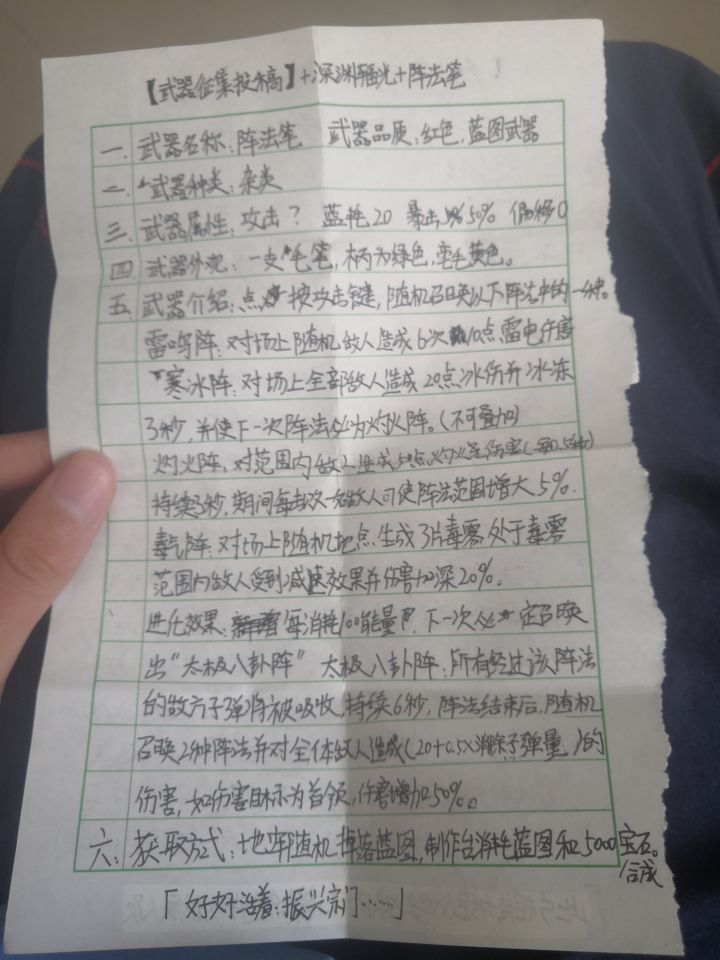 【武器征集投稿】+深渊辐光+阵法笔
一. 武器名称:阵法笔 武器品质:红色,蓝图武器
二. 武器种类:杂类
三. 武器属性:攻击? 蓝耗20 暴击50% 偏移0
四. 武器外观:一支毛笔,木柄为绿色,笔毛黄色。
五. 武器介绍:点按攻击键,随机召唤以下阵法中的一种。
雷鸣阵:对场上随机敌人造成6次10点雷电伤害
寒冰阵:对场上全部敌人造成20点冰伤并冰冻
3秒,并使下一次阵法必为灼火阵。(不可叠加)
灼火阵:对范围内敌人造成 点灼烧伤害(每0.5秒)
持续3秒,期间每击败一名敌人可使阵法范围增大5%.
毒气阵:对场上随机地点生成3片毒雾,处于毒雾
范围内敌人受到减速效果并伤害加深20%.
进化效果:每消耗100能量时,下一次必定召唤
出“太极八卦阵” 太极八卦阵:所有经过该阵法
的敌方子弹将被吸收,持续6秒,阵法结束后,随机
召唤2种阵法并对全体敌人造成(20+0.5×消除子弹量)的
伤害,如伤害目标为首领,伤害增加50%。
六: 获取方式:地牢随机掉落蓝图,制作台消耗蓝图和5000宝石。
合成
「好好活着:振兴宗门……」